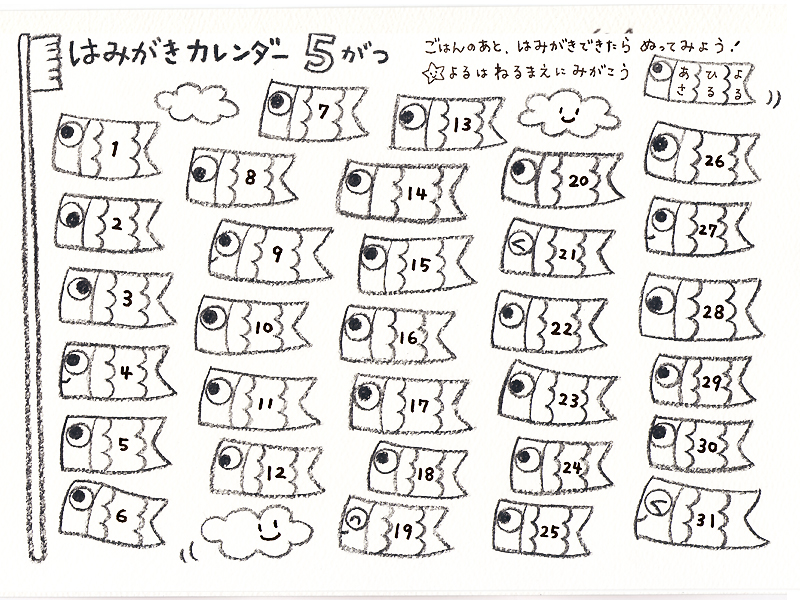 はみがきカレンダー 5がつ
ごはんのあと、はみがきできたら ぬってみよう!
☆よるは ねるまえに みがこう
あさ ひる よる
1
2
3
4
5
6
7
8
9
10
11
12
13
14
15
16
17
18
19
20
21
22
23
24
25
26
27
28
29
30
31